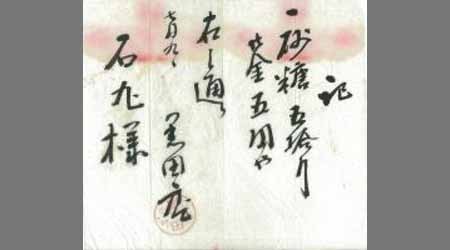 記
一砂糖五拾斤
金五円也
右之通
七月九日 黒田
石九様